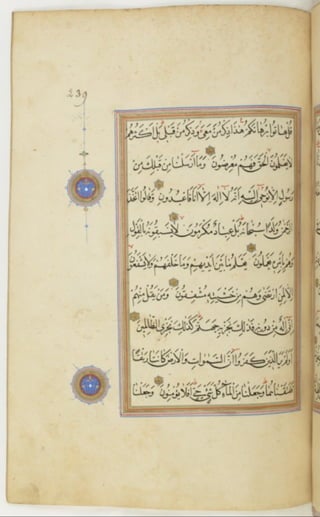 239
قُلْ هَاتُوا بُرْهَانَكُمْ هٰذَا ذِكْرُ مَنْ مَعِيَ وَذِكْرُ مَنْ قَبْلِي بَلْ اَكْثَرُهُمْ
لَا يَعْلَمُونَ الْحَقَّ فَهُمْ مُعْرِضُونَ وَمَا اَرْسَلْنَا مِنْ قَبْلِكَ مِنْ
رَسُولٍ اِلَّا نُوحِي اِلَيْهِ اَنَّهُ لَا اِلٰهَ اِلَّا اَنَا فَاعْبُدُونِ وَقَالُوا اتَّخَذَ
الرَّحْمٰنُ وَلَدًا سُبْحَانَهُ بَلْ عِبَادٌ مُكْرَمُونَ لَا يَسْبِقُونَهُ بِالْقَوْلِ
وَهُمْ بِاَمْرِهِ يَعْمَلُونَ يَعْلَمُ مَا بَيْنَ اَيْدِيهِمْ وَمَا خَلْفَهُمْ وَلَا يَشْفَعُونَ
اِلَّا لِمَنِ ارْتَضٰى وَهُمْ مِنْ خَشْيَتِهِ مُشْفِقُونَ وَمَنْ يَقُلْ مِنْهُمْ
اِنِّي اِلٰهٌ مِنْ دُونِهِ فَذٰلِكَ نَجْزِيهِ جَهَنَّمَ كَذٰلِكَ نَجْزِي الظَّالِمِينَ
اَوَلَمْ يَرَ الَّذِينَ كَفَرُوا اَنَّ السَّمٰوَاتِ وَالْاَرْضَ كَانَتَا رَتْقًا
فَفَتَقْنَاهُمَا وَجَعَلْنَا مِنَ الْمَاءِ كُلَّ شَيْءٍ حَيٍّ اَفَلَا يُؤْمِنُونَ وَجَعَلْنَا